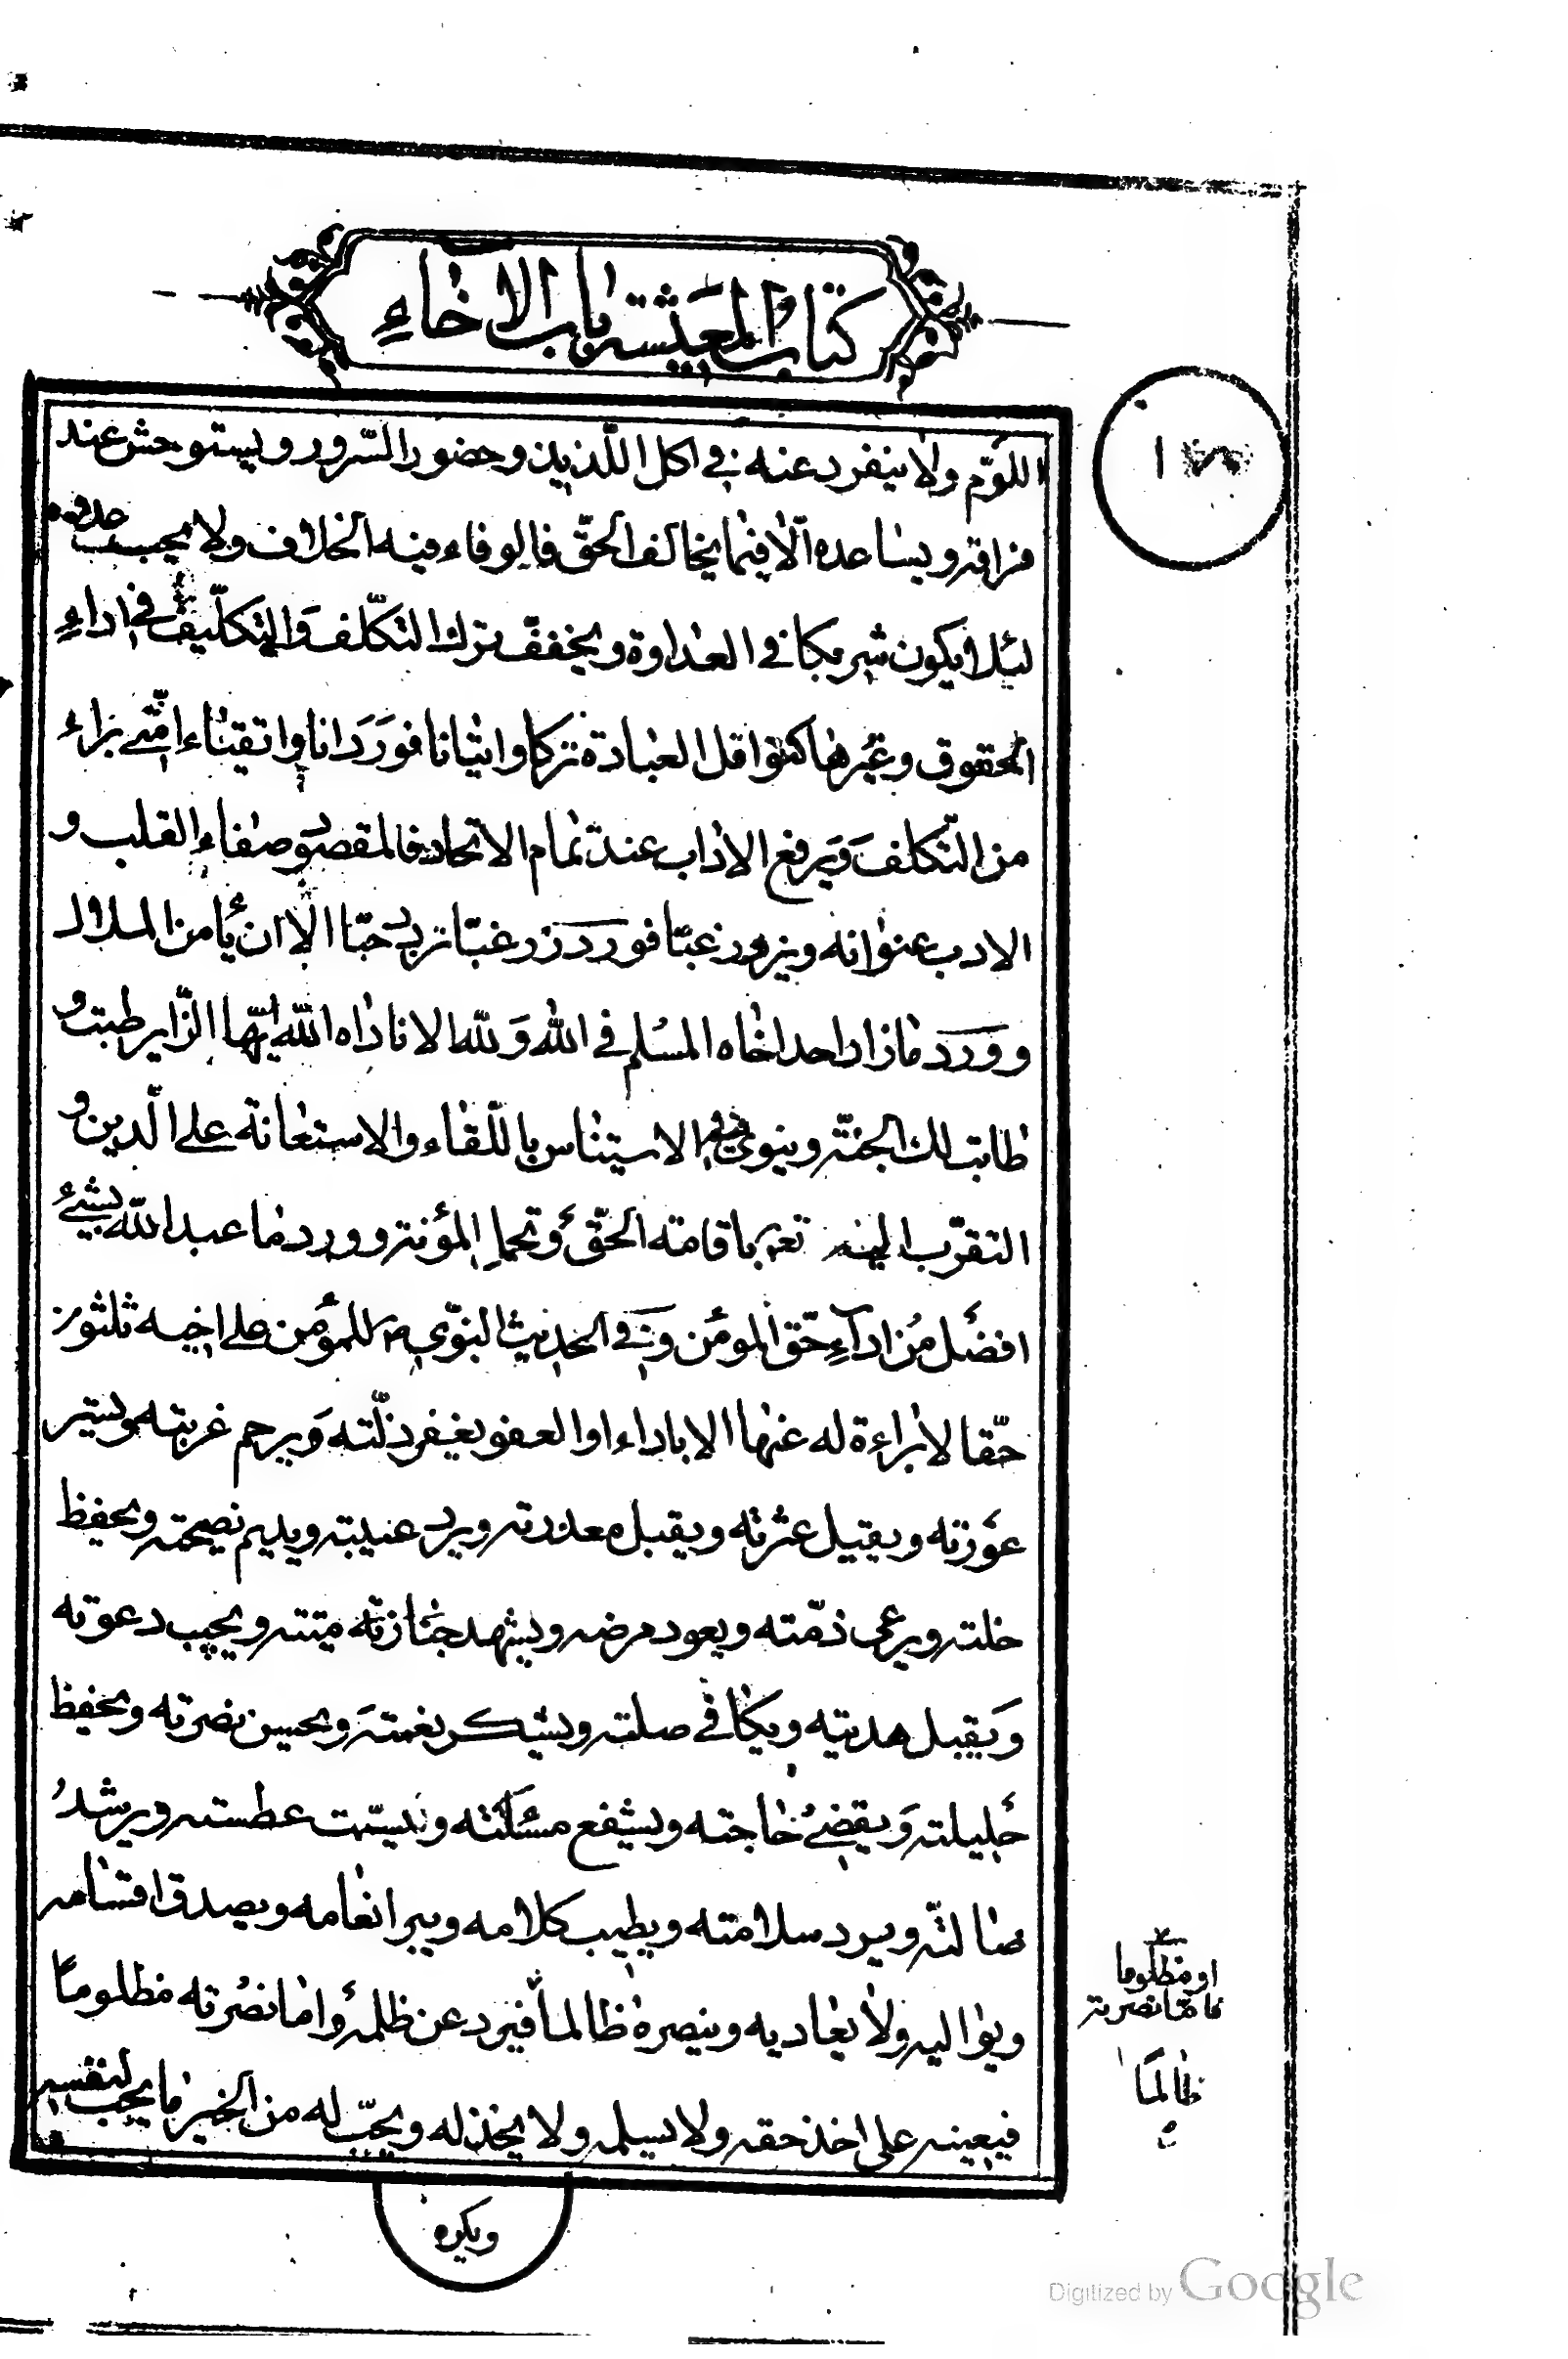 كتاب المعيشة باب الاخاء
اللؤم ولا ينفرد عنه في اكل اللذيذ وحضور السرور ويستوحش عند
فراقه ويساعده الا فيما يخالف الحق فالوفاء فيه الخلاف ولا يحب عدوه
لئلا يكون شريكا في العداوة ويخفف بترك التكلف والتكليف في اداء
الحقوق وغيرها كنوافل العبادة تركا واتيانا فورد انا واتقياء امتي براء
من التكلف ويرفع الاداب عند تمام الاتحاد فالمقصود صفاء القلب و
الادب عنوانه ويزور غبا فورد زر غبا تزدد حبا الا ان يأمن الملال
وورد ما زار احد اخاه المسلم في الله ولله الا ناداه الله ايها الزاير طبت و
طابت لك الجنة وينوي فيه الاستيناس باللقاء والاستعانة على الدين و
التقرب اليه تعالى باقامة الحق وتحمل المؤنة وورد ما عبد الله بشيء
افضل من اداء حق المؤمن وفي الحديث النبوي ص للمؤمن على اخيه ثلثون
حقا لا براءة له عنها الا باداء او العفو يغفر زلته ويرحم غربته ويستر
عورته ويقيل عثرته ويقبل معذرته ويرد غيبته ويديم نصيحته ويحفظ
خلته ويرعى ذمته ويعود مرضه ويشهد جنازته ميته ويجيب دعوته
ويقبل هديته ويكافي صلته ويشكر نعمته ويحسن نصرته ويحفظ
حليلته ويقضي حاجته ويشفع مسئلته ويسمت عطسته ويرشد
ضالته ويرد سلامته ويطيب كلامه ويبر انعامه ويصدق اقسامه
ويواليه ولا يعاديه وينصره ظالما فيرد عن ظلمه واما نصرته مظلوما
فيعينه على اخذ حقه ولا يسلمه ولا يخذله ويحب له من الخير ما يحب لنفسه
او مظلوما
فاما نصرته
ظالما
ويكره
Digitized by Google